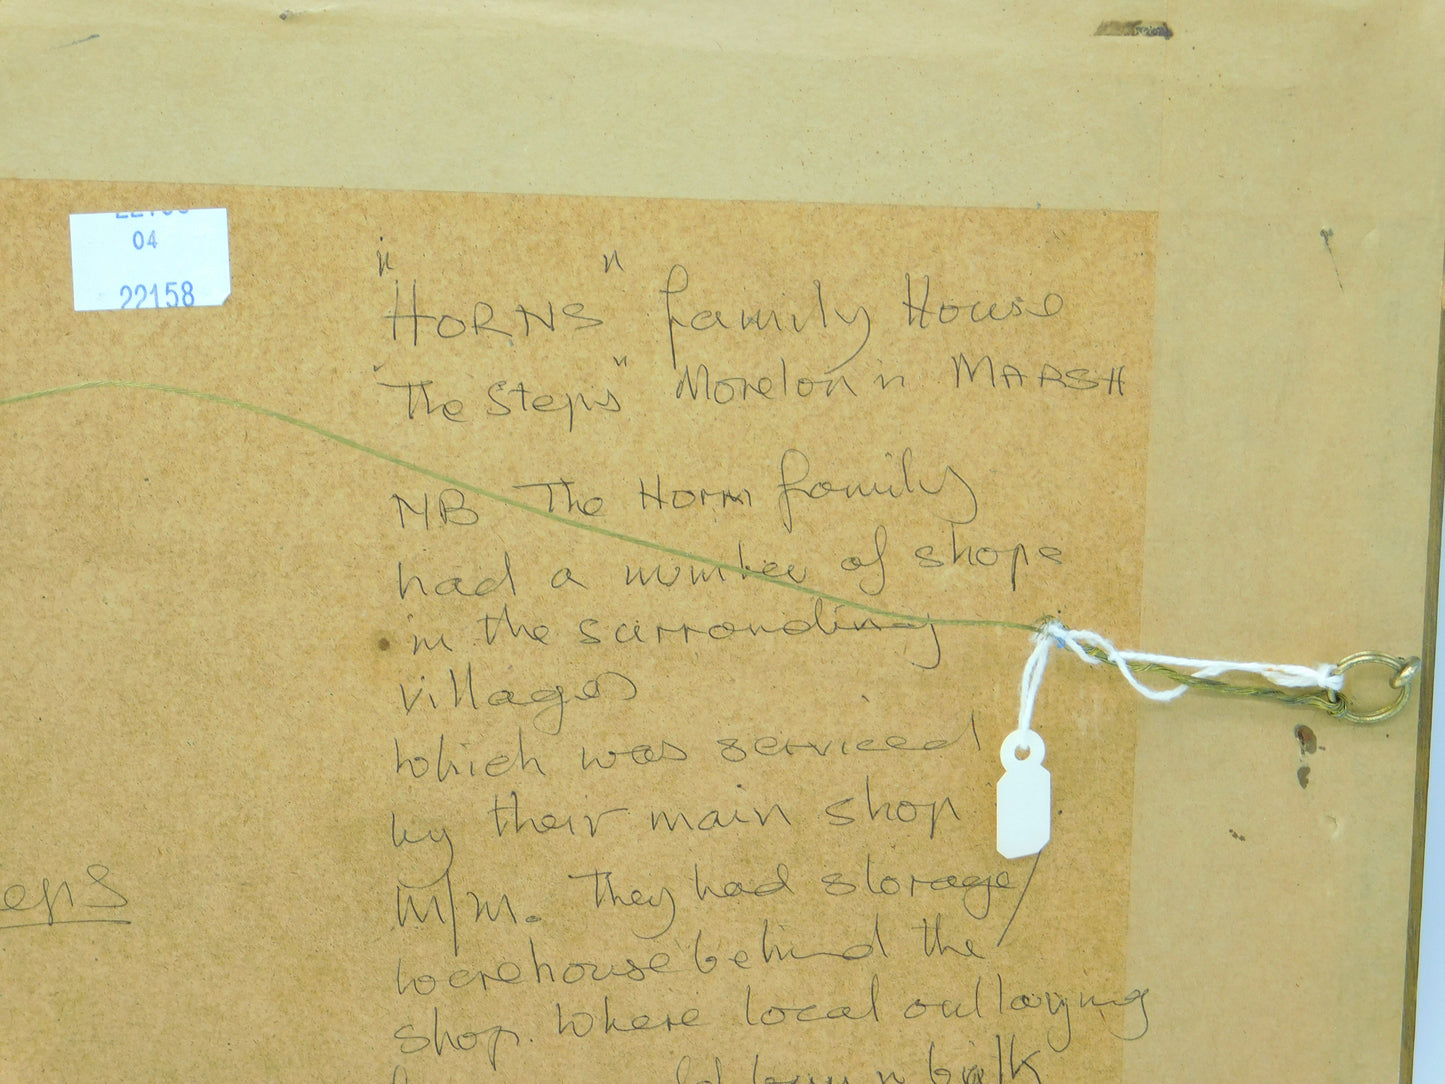 04
22158
"HORNS" family House
"The Steps" Moreton in MARSH
NB The Horn family
had a number of shops
in the surronding
villages
which was serviced
by their main shop
M/M. They had storage/
werehouse behind the
shop. Where local outlaying
buy in bulk